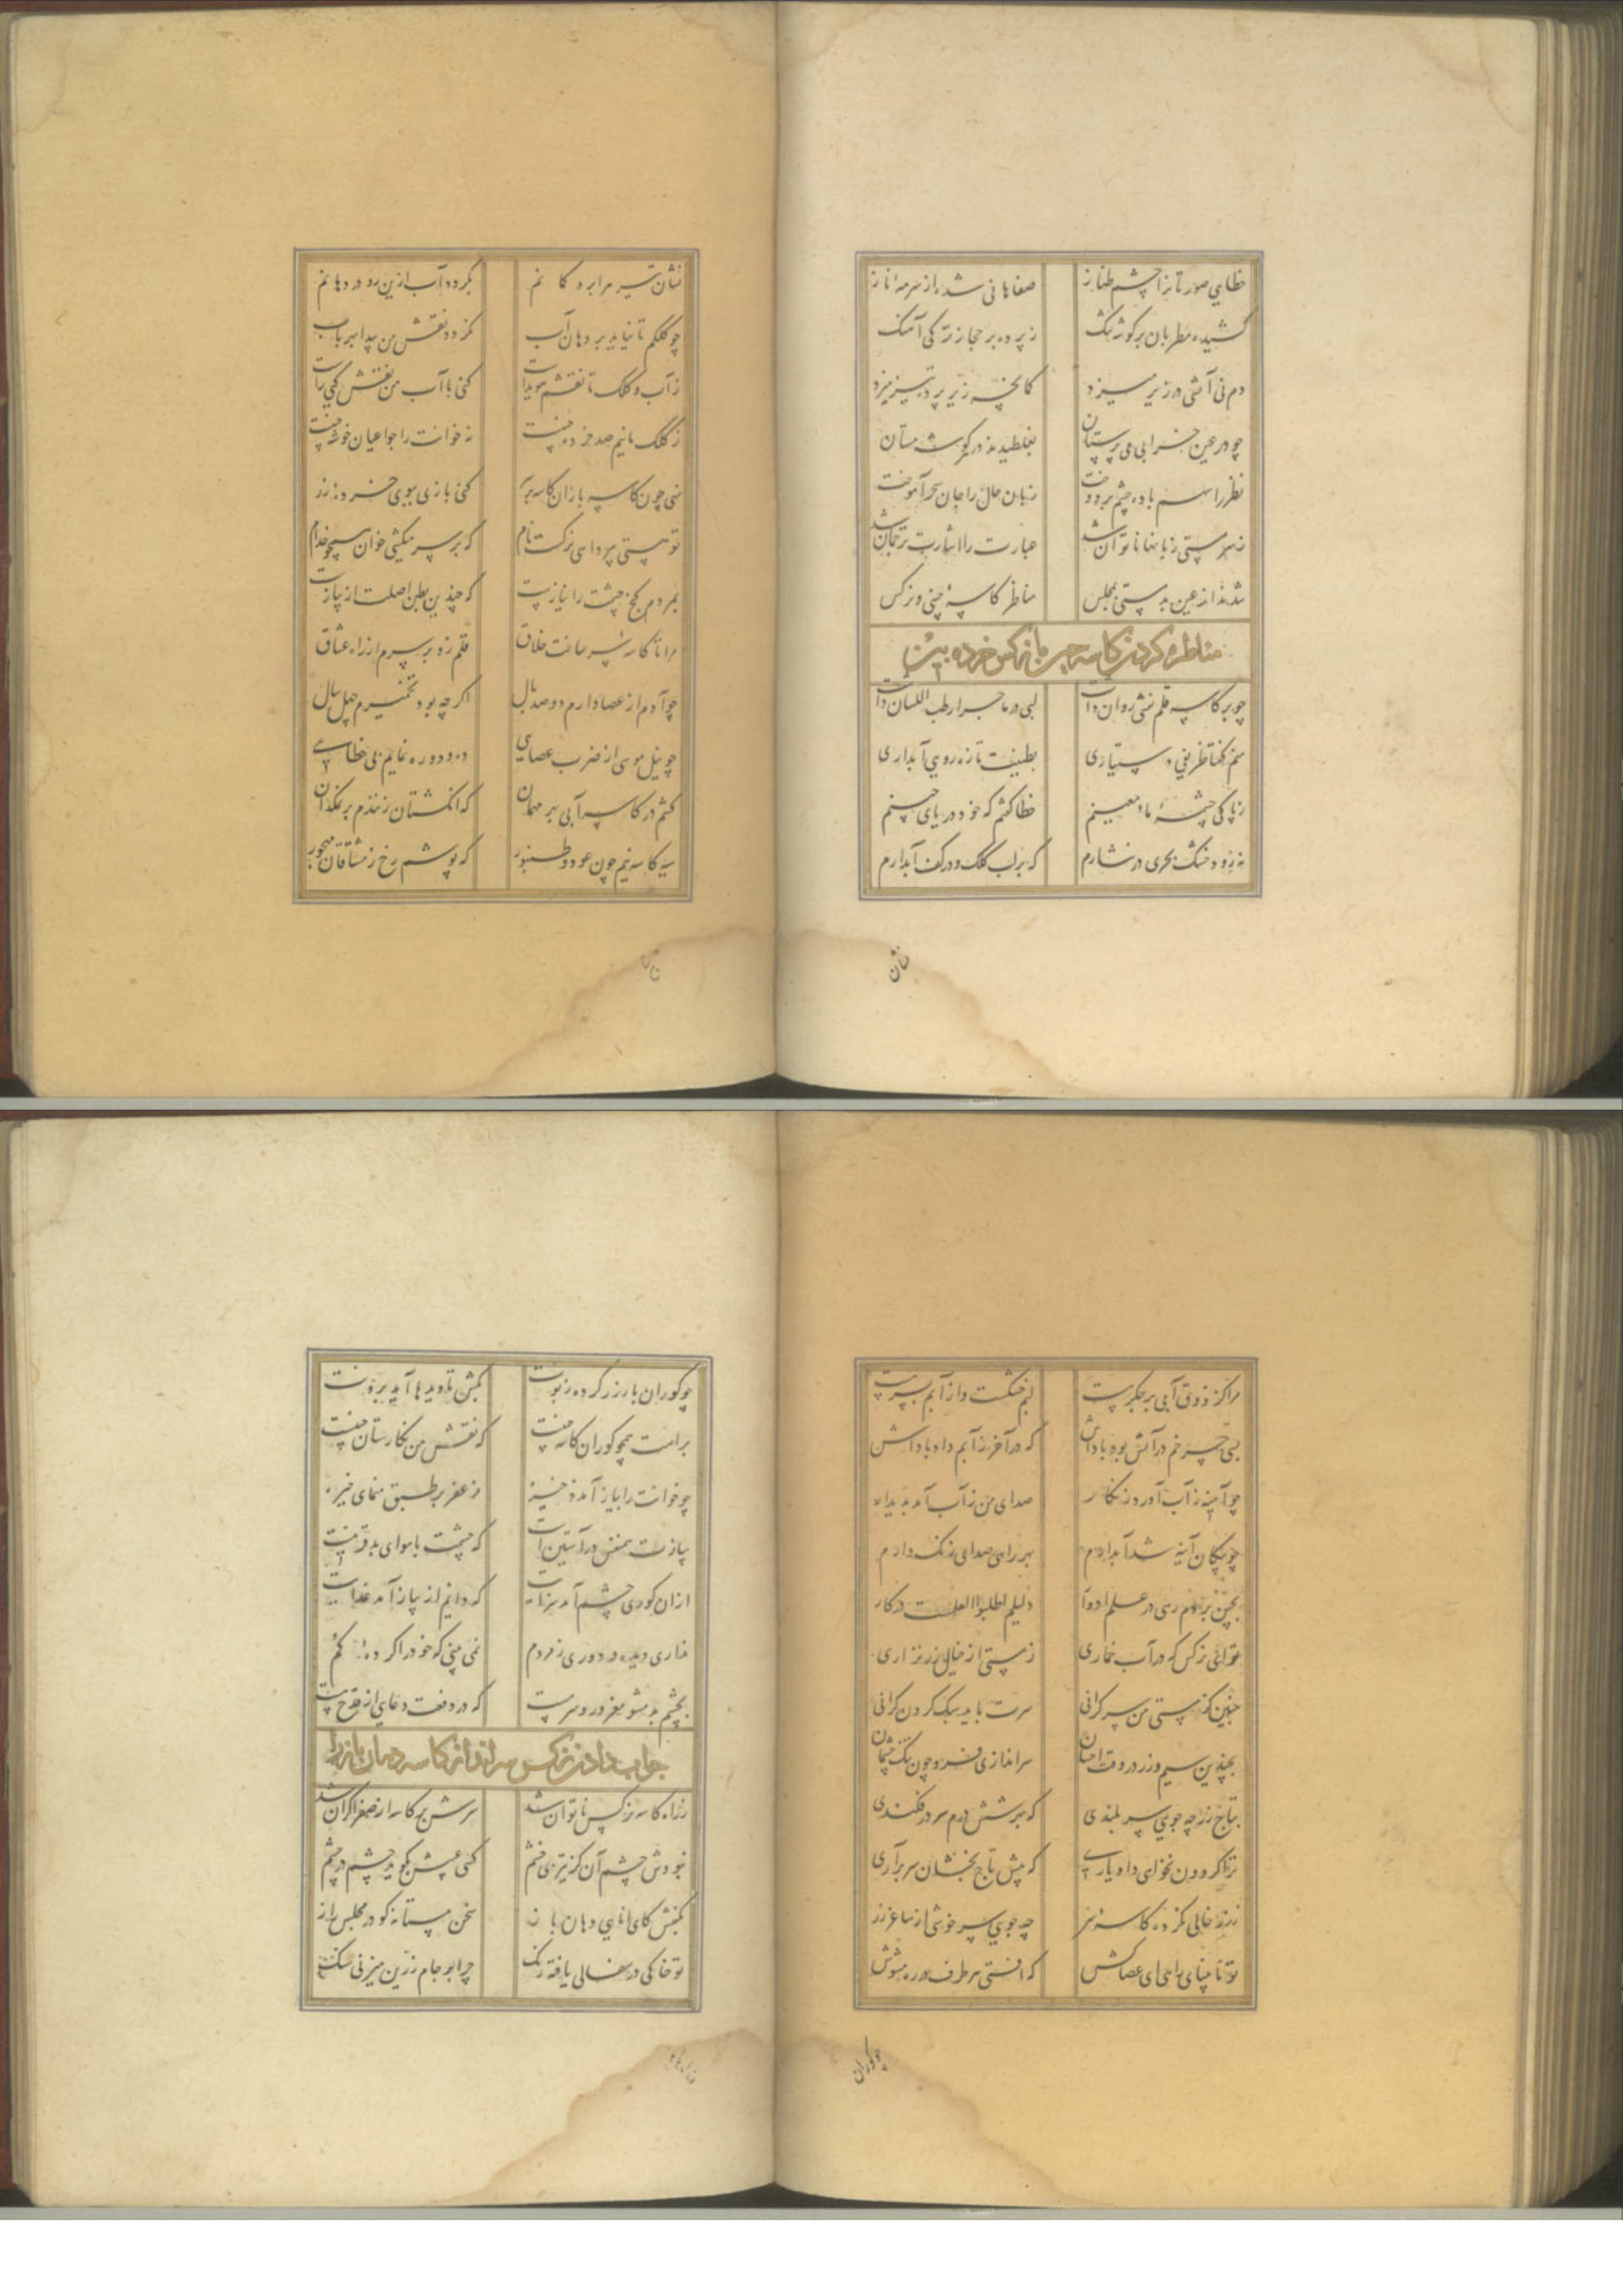 خطایی صورتان را چشم طناز صفاهانی شده از سرمهٔ ناز
کشیده مطربان بر گوشه چنگ ز پرده بر حجاز ترکی آهنگ
دم نی آتشی در زیر میزد کمانچه زیر پرده تیر میزد
چو در عین خرابی می پرستان بغلطیدند در هر گوشه مستان
نظر را سهم باده چشم بردوخت زبان حال را جان سحر آموخت
ز سرمستی زبانها ناتوان شد عبارت را اشارت ترجمان شد
شدند از عین بدمستی بمجلس مناظر کاسهٔ چینی و نرگس
مناظره کردن کاسه چینی با نرگس خرده بین
چو بر کاسه قلم نقشی روان داشت لبی در ماجرا رطب اللسان داشت
منم گفتا ظریفی دستیاری بطینت تازه رویی آبداری
ز پاکی چشمهٔ ماء معینم خطا گفتم که خود دریای چینم
نه زود خشک بحری در نشارم که بر لب کلک و در کف آبدارم
نشان
نشان تیر مرا برد کا نم بگردد آب ازین رو در دهانم
چو کلکم تا نیاید بر دهان آب نگردد نقش من پیدا بهر باب
ز آب و کلک تا نقشم هویداست کنی با آب من نقش کجی راست
ز کلک مانیم صد خرده چینست نه خوانت را جو اعیان خوشه چینست
منی چون کاسه بازان کاسه بر سر کنی بازی ببوی خردهٔ زر
تو مستی پرده ای نرگست نام که بر سر میکشی خوان همچو خدام
بمردم کنج چشمت را نیازیست که چندین بطن اصلت از پیازیست
مرا تا کاسهٔ سر ساخت خلاق قلم زد بر سرم از راه عشاق
چو آدم از عصا دارم دو صد بال اگر چه بود تخمیرم چهل سال
چو نیل موسی از ضرب عصایی ده و دو ره نمایم بی خطایی
کشم در کاسه آبی بر مهمان که انگشتان زنندم بر نمکدان
سیه کاسه نیم چون عود و طنبور که پوشم رخ ز مشتاقان مهجور
مرا گر ذوق آبی بر جگر نیست لبم خشکست و از آبم بسر نیست
بسی خرم در آتش بود پاداش که در آخر ز آبم داد پاداش
چو آیینه ز آب آورد زنگار صدای من ز آب آمد پدیدار
چو پیکان آینه شد آبدارم بهر رایی صدای زنگ دارم
بچین بردم رهی در علم ادوار دلیلم اطلبوا العلمست درکار
تو ای نرگس که در آب خماری ز مستی از خیال زر نزاری
چنین کز مستی من سر گرانی سرت باید سبک کردن گرانی
بچندین سیم و زر در وقت احسان سراندازی فرو چون تنگ چشمان
بتاج زر چه جویی سر بلندی که بر شش درم سر در فکندی
ترا گردون نخوای داد یاری که پیش تاج بخشان سر برآری
ز زر خالی نکرده کاسهٔ سر چه جویی سر خوشی از ساغر زر
تو نابینای راهی ای عصاکش که افتی هر طرف در ره مشوش
چو کوران
چو کوران بار زر کرده زبونت بکش تا دیدها آید برونت
برامت همچو کوران کاسه چینست که نقش من نگارستان چینست
چو خوانت را پیاز آمد ذخیره مزعفر بر طبق منمای خیره
پیازت همنفس در آستین است که چشمت با هوای بد قرینست
ازان کوری چشم آمد سزایت که دایم از پیاز آمد غذایت
نداری دیده و دوری ز مردم نمی بینی که خود را کردهٔ گم
بچشم بد مشو مغرور و سرمست که در دفعت دعایی از قدح هست
جواب دادن نرگس سرانداز کاسه دهان باز را
ز راه کاسه نرگس ناتوان شد سرش بر کاسه از صفرا گران شد
نبودش چشم آن کز تیزی خشم کسی عیبش بگوید چشم در چشم
بکفتش کای انایی دهان باز سخن مستانه گو در مجلس راز
تو خاکی در سفالی یافته رنگ چرا بر جام زرین میزنی سنگ